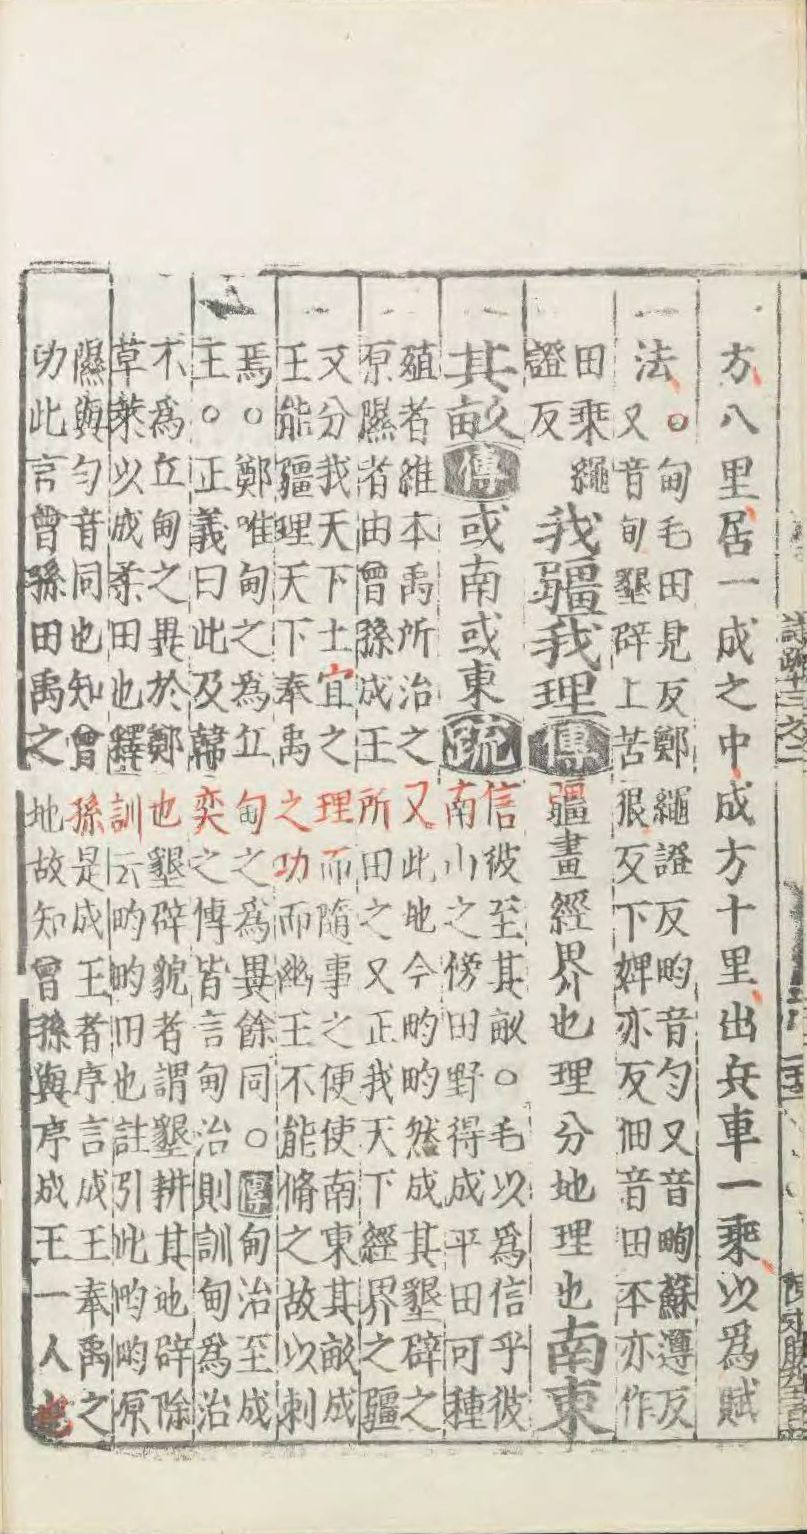 方八里居一成之中成方十里出兵車一乘以爲賦
法
○甸毛田見反鄭繩證反畇音勻又音畇蘇遵反
又音旬墾辟上苦狠反下婢亦反佃音田本亦作
田乘繩
證反
我疆我理傳疆畫經界也理分地理也南東
其畝傳或南或東疏
信彼至其畝○毛以爲信乎彼
南山之傍田野得成平田可種
殖者維本禹所治之又此地今畇畇然成其墾辟之
原隰者由曾孫成王所田之又正我天下經界之疆
又分我天下土宜之理而隨事之便使南東其畝成
王能疆理天下奉禹之功而幽王不能脩之故以刺
焉○鄭唯甸之爲丘甸之爲異餘同○傳甸治至成
王○正義曰此及韓奕之傳皆言甸治則訓甸爲治
不爲丘甸之異於鄭也墾辟貌者謂墾耕其地辟除
草萊以成柔田也釋訓云畇畇田也註引此畇畇原
隰與勻音同也知曾孫是成王者序言成王奉禹之
功此言曾孫田禹之地故知曾孫與序成王一人也
詩疏十三之二